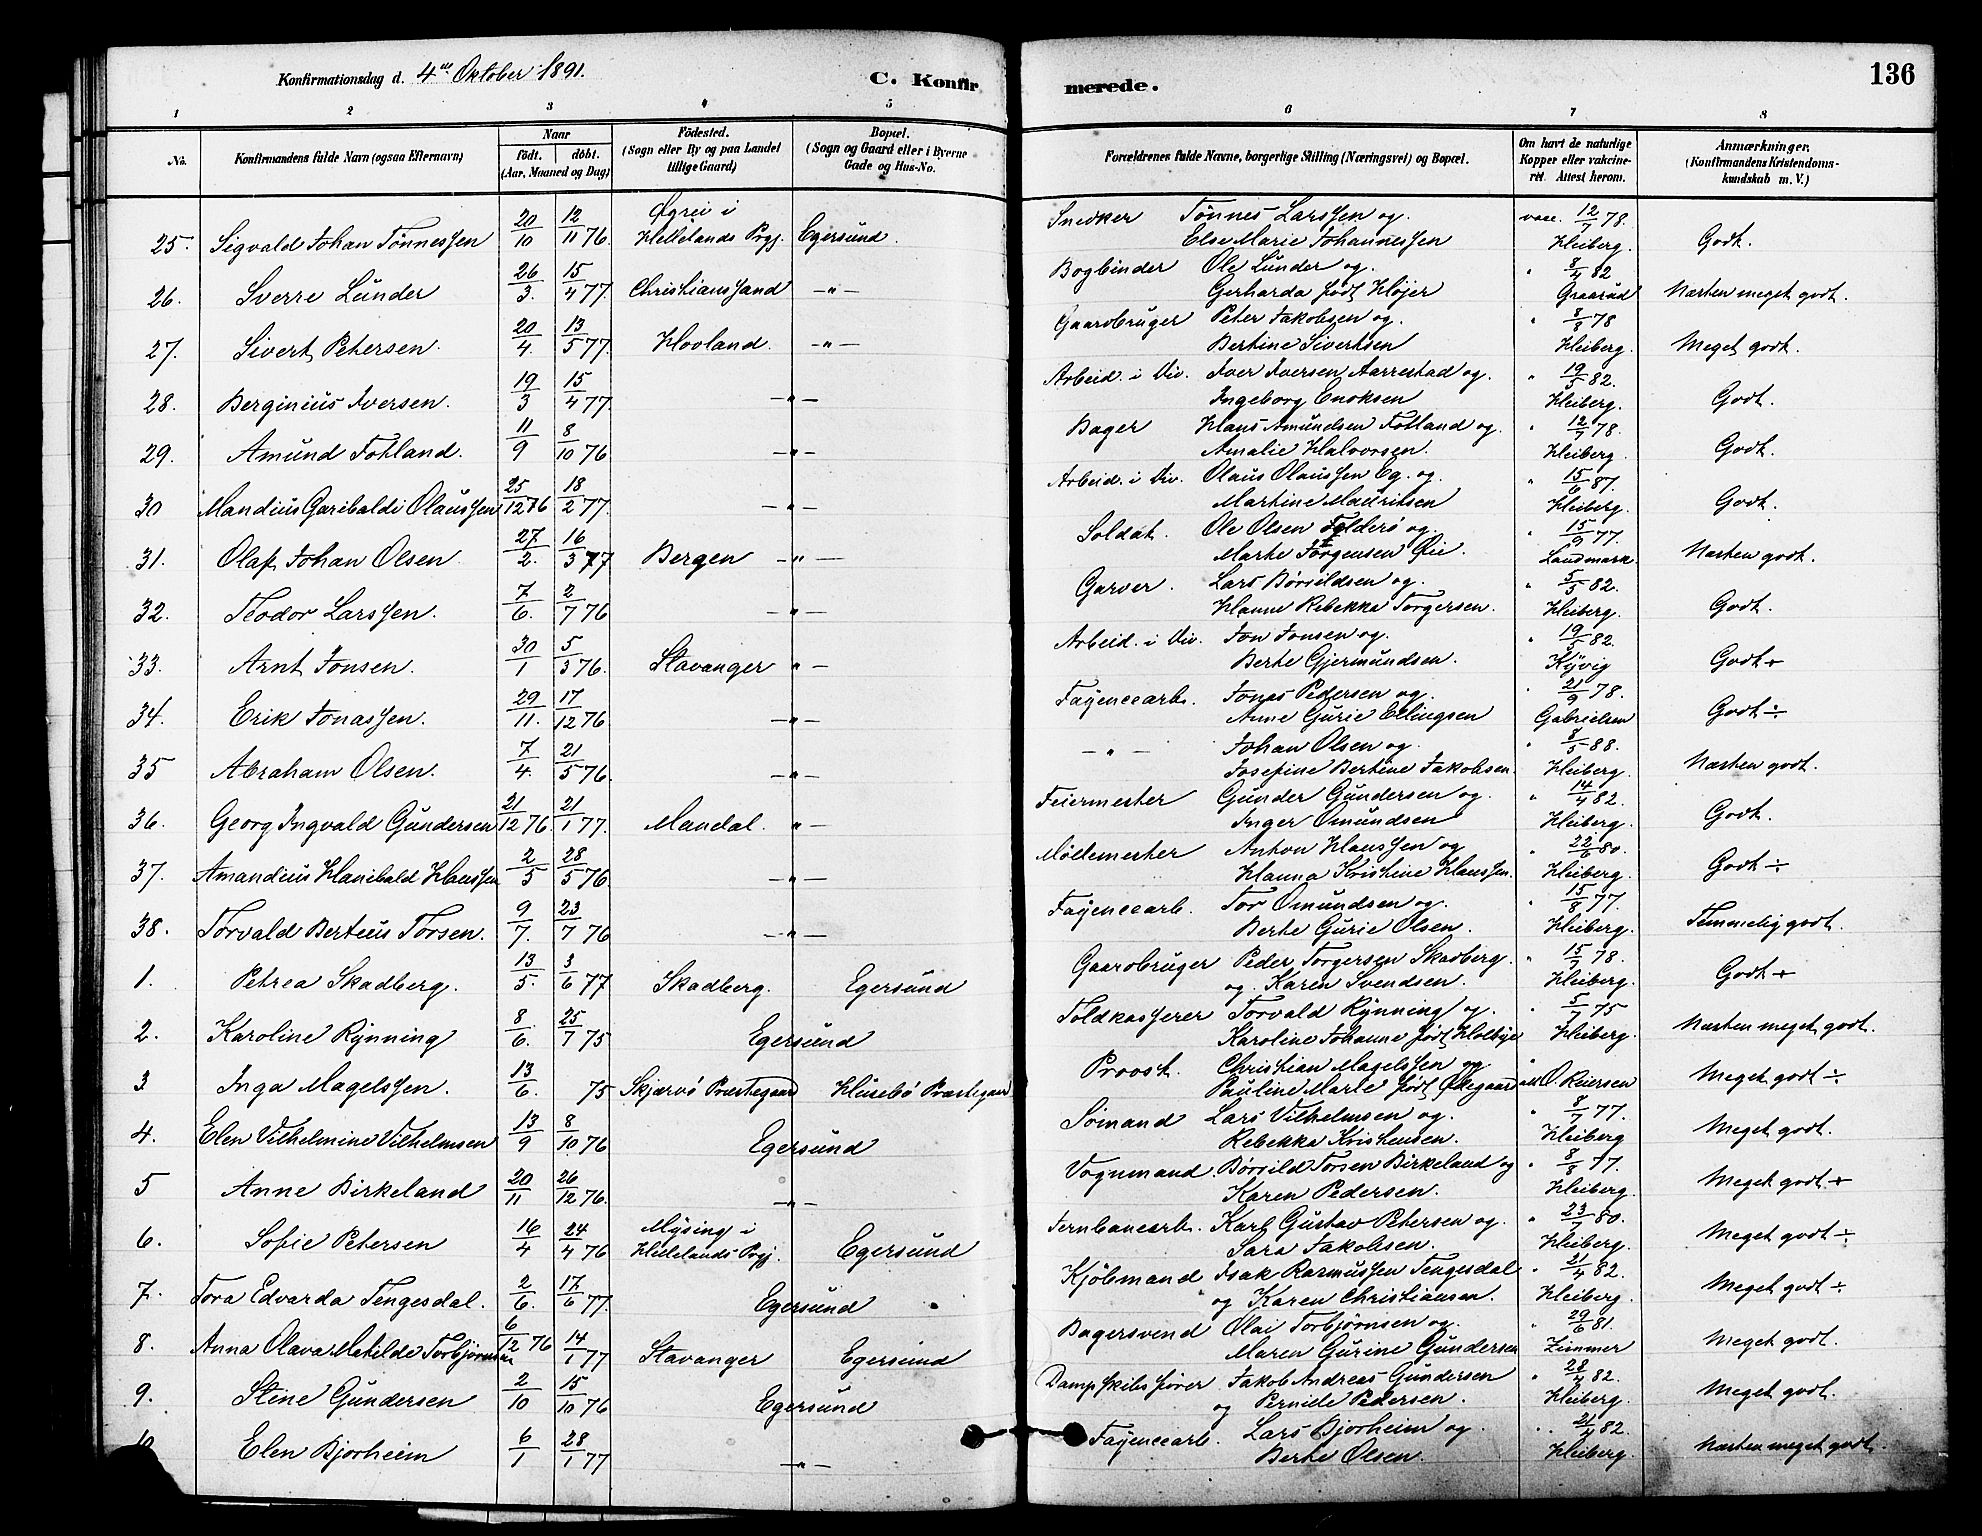 Konfirmationsdag d. 4de Oktober 1891.
C. Konfirmerede.
136
1 2 3 4 5 6 7 8
No. Konfirmandens fulde Navn (ogsaa Efternavn) Naar født. døbt. (Aar, Maaned og Dag) Fødested. (Sogn eller By og paa Landet tillige Gaard) Bopæl. (Sogn og Gaard eller i Byerne Gade og Hus-No. Forældrenes fulde Navne, borgerlige Stilling (Næringsvei) og Bopæl. Om havt de naturlige Kopper eller vakcineret. Attest herom. Anmærkninger. (Konfirmandens Kristendomskundskab m. V.)
25. Sigvald Johan Tönnessen 20/10 12/11 76 Øgrei i Hellelands Prgj. Egersund. Snedker Tönnes Larssen og Else Marie Johannessen vacc. 12/7 78. Heiberg. Godt.
26. Sverre Lunder 26/3. 15/4 77. Christianssand -"- Bogbinder Ole Lunder og Gerharda født Højer " 8/4 82 Graarud Næsten meget godt.
27. Sivert Petersen. 20/4. 13/5 77. Hovland. -"- Gaardbruger Peter Jakobsen og Bertine Sivertsen " 8/8 78 Heiberg. Meget godt.
28. Berginius Iversen. 19/3 15/4 77. -"- Arbeid. i Div. Iver Iversen Aarrestad og Ingeborg Enoksen " 19/5 82. Heiberg. Godt.
29. Amund Fotland. 11/9 8/10 76 -"- Bager Hans Amundsen Fotland og Amalie Halvorsen. " 12/7 78. Heiberg. Godt.
30 Mandius Garibaldi Olaussen 25/12 76 18/2 77. -"- Arbeid. i Div. Olaus Olaussen Eg. og Martine Mauritsen " 15/6 87. Heiberg. Godt.
31. Olaf Johan Olsen 27/2. 16/3 77 Bergen -"- Soldat. Ole Olsen Folderö og Marte Jörgensen Øie. " 15/9 77. Landmark Næsten godt.
32. Teodor Larssen. 7/6. 2/7 76 -"- Garver. Lars Börsildsen og Hanne Rebekka Torgersen. " 5/5 82. Heiberg. Godt.
33. Arnt Jonsen. 30/1 5/3 76. Stavanger "- Arbeid. i Div. Jon Jonsen og Berte Gjermundsen. " 19/5 82. Kyvig Godt+
34. Erik Jonassen. 29/11. 17/12 76 -"- Fayencearb. Jonas Pedersen og Anne Gurie Ellingsen " 21/9 78. Gabrielsen Godt ÷
35 Abraham Olsen. 7/4. 21/5 76. -"- -"- Johan Olsen og Josefine Bertine Jakobsen. " 8/5 88. Heiberg. Næsten godt.
36. Georg Ingvald Gundersen 21/12 76. 21/1 77. Mandal. "- Feiermester Gunder Gundersen og Inger Omundsen " 14/4 82. Heiberg. Godt.
37. Amandius Hanibald Hanssen 2/5 28/5 76. -"- Möllemester Anton Hanssen og Hanna Kristine Hanssen. " 22/6 80. Heiberg. Godt ÷
38. Torvald Berteus Torsen. 9/7. 23/7 76 -"- Fayencearb. Tor Omundsen og Berte Gurie Olsen. " 15/8 77. Heiberg. Temmelig godt.
1. Petrea Skadberg. 13/5. 3/6 77 Skadberg. Egersund Gaardbruger Peder Torgersen Skadberg. og Karen Svendsen. " 15/7 78. Heiberg. Godt +
2. Karoline Rynning 8/6. 25/7 75 Egersund Toldkasserer Torvald Rynning og Karoline Johanne født Holbye " 5/7 75 Heiberg. Næsten meget godt.
3 Inga Magelssen. 13/6. 75 Skjervö Præstegaard Husebö Præstegaard Provst. Christian Magelssen og Pauline Marie født Ødegaard O. Reiersen Meget godt ÷
4. Elen Vilhelmine Vilhelmsen 13/9 8/10 76 Egersund Sömand Lars Vilhelmsen og Rebekka Kristensen. " 8/7 77. Heiberg Meget godt.
5 Anne Birkeland 20/11 26/12 76. -"- Vognmand. Börsild Torsen Birkeland og Karen Pedersen. " 8/8 77. Heiberg. Meget godt +
6. Sofie Petersen 16/4 24/4 76 Mysing i Hellelands Prgj. Egersund Jernbanearb. Karl Gustav Petersen og Sara Jakobsen. " 23/7 80. Heiberg. Meget godt ÷
7. Tora Edvarda Tengesdal. 2/6. 17/6 77. Egersund Kjöbmand Isak Rasmussen Tengesdal og Karen Christiansen. " 21/4 82. Heiberg. Meget godt ÷
8. Anna Olava Matilde Torbjörnsen 6/12 76 14/1 77 Stavanger Egersund Bagersvend Olai Torbjörnsen og Maren Gurine Gundersen " 29/6 81. Zimmer Meget godt.
9. Stine Gundersen 2/10 15/10 76 Egersund Dampskibsförer Jakob Andreas Gundersen og Pernille Pedersen. " 28/4 82. Heiberg. Meget godt.
10 Elen Bjorheim 6/1 28/1 77 -"- Fayencearb. Lars Bjorheim og Berte Olsen. " 21/4 82 Heiberg. Næsten meget godt.